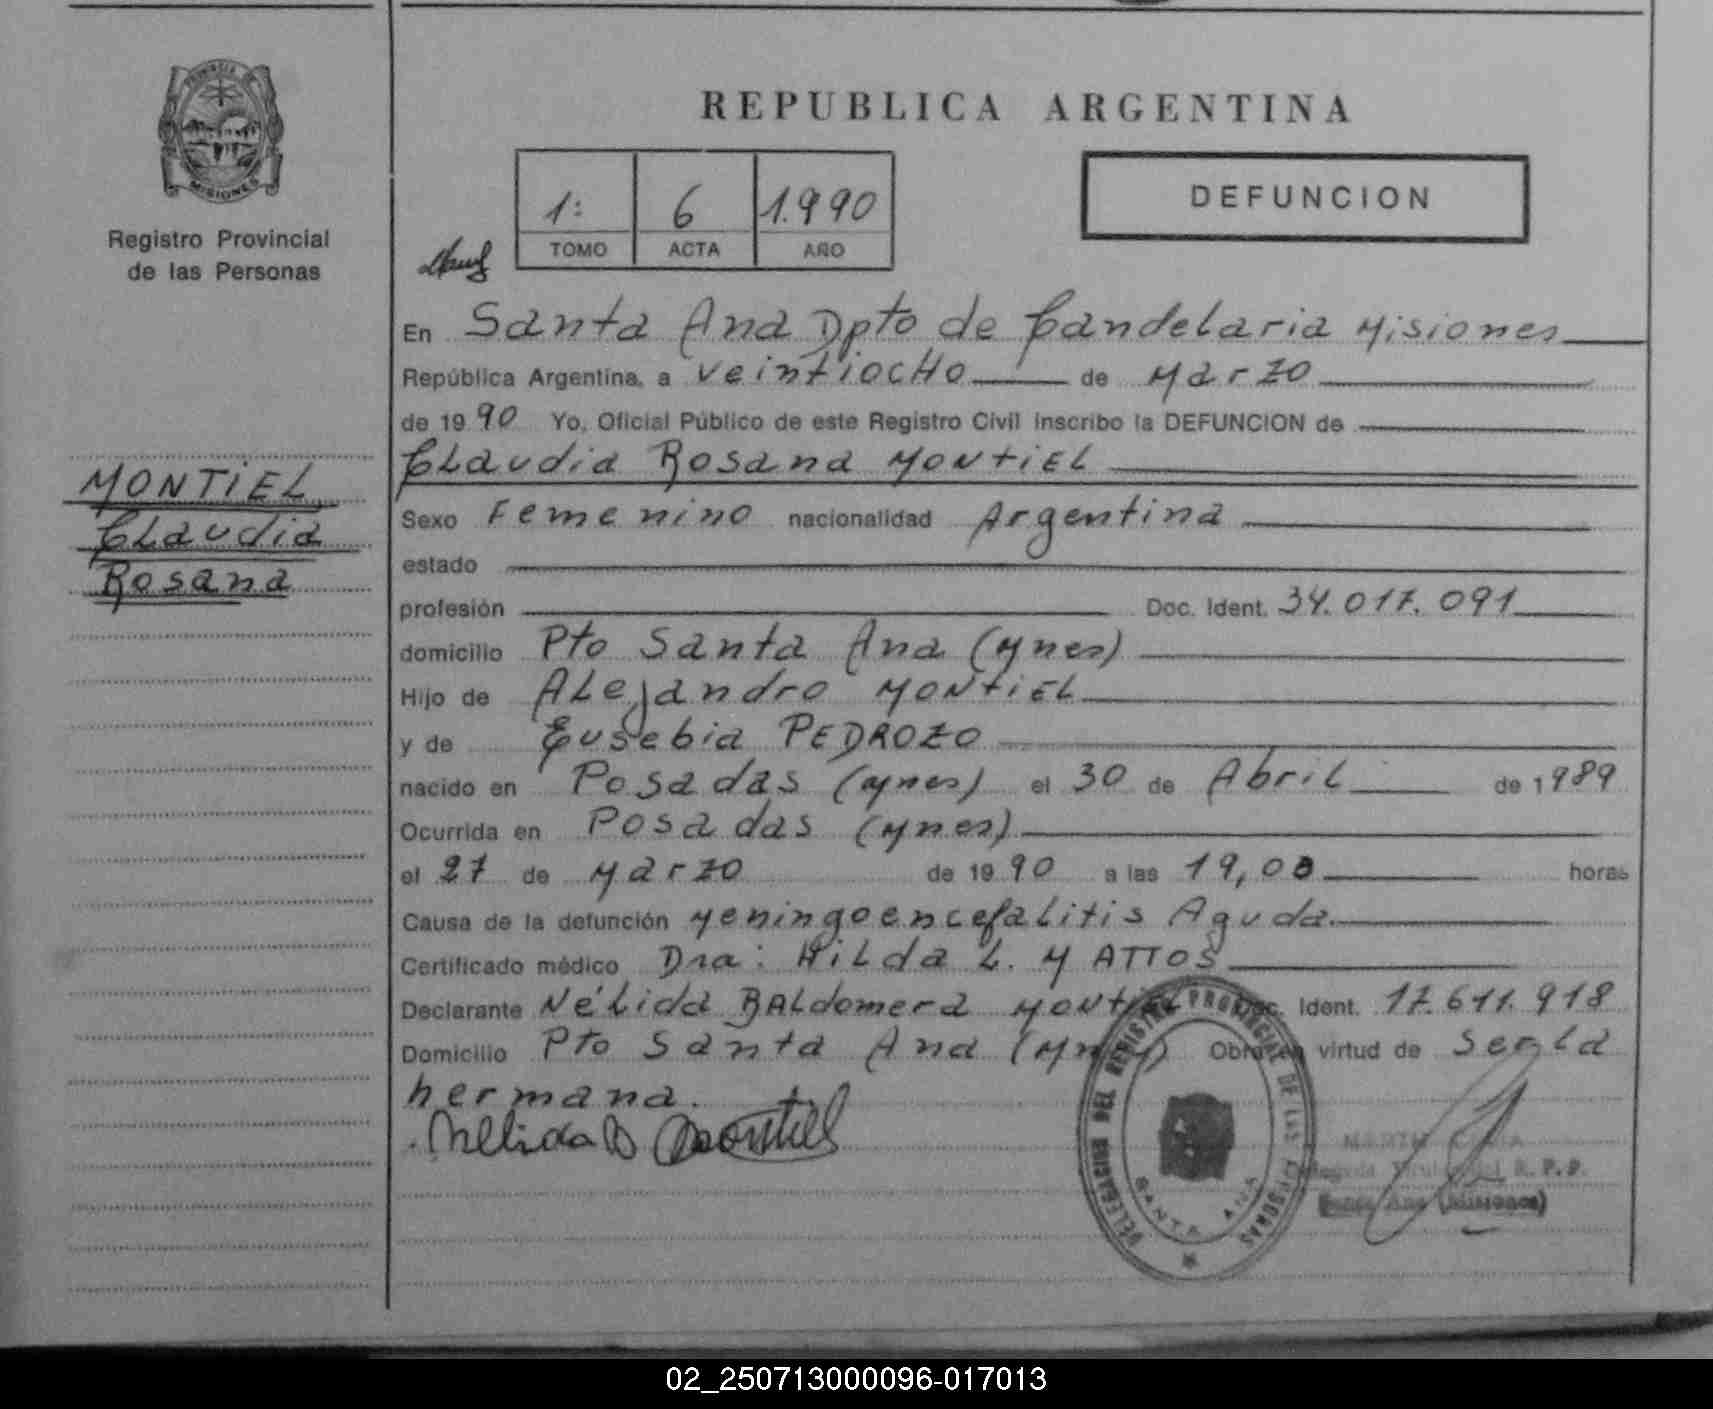 PROVINCIA DE
MISIONES
Registro Provincial
de las Personas
MONTIEL
Claudia
Rosana
REPUBLICA ARGENTINA
1: 6 1.990
TOMO ACTA AÑO
DEFUNCION
En Santa Ana Dpto de Candelaria Misiones
República Argentina, a veintiocHo de Marzo
de 19 90 Yo, Oficial Público de este Registro Civil inscribo la DEFUNCION de
Claudia Rosana MONTIEL
Sexo Femenino nacionalidad Argentina
estado
profesión Doc. Ident. 34.017.091
domicilio Pto Santa Ana (Mnes)
Hijo de ALejandro MONTIEL
y de Eusebia PEDROZO
nacido en Posadas (Mnes) el 30 de Abril de 1989
Ocurrida en Posadas (Mnes)
el 27 de Marzo de 19 90 a las 19,00 horas
Causa de la defunción Meningoencefalitis Aguda.
Certificado médico Dra: Hilda L. MATTOS
Declarante Nélida BALdomera MONTIEL Doc. Ident. 17.611.918
Domicilio Pto Santa Ana (Mnes) Obra en virtud de Ser la
hermana.
Nelida B Montiel
DELEGACION DEL REGISTRO PROVINCIAL DE LAS PERSONAS
SANTA ANA
Delegada Titular del R. P. P.
Santa Ana (Misiones)
02_250713000096-017013